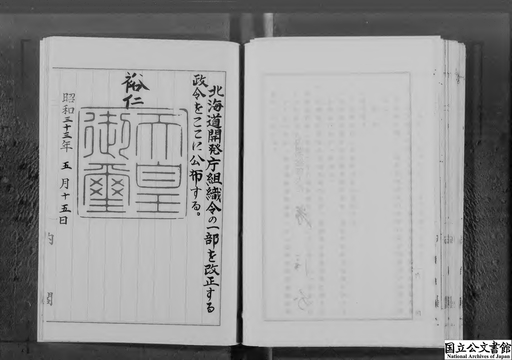 北海道開発庁組織令の一部を改正する
政令をここに公布する。
裕仁
天皇
御璽
昭和三十三年五月十五日
内閣
国立公文書館
National Archives of Japan